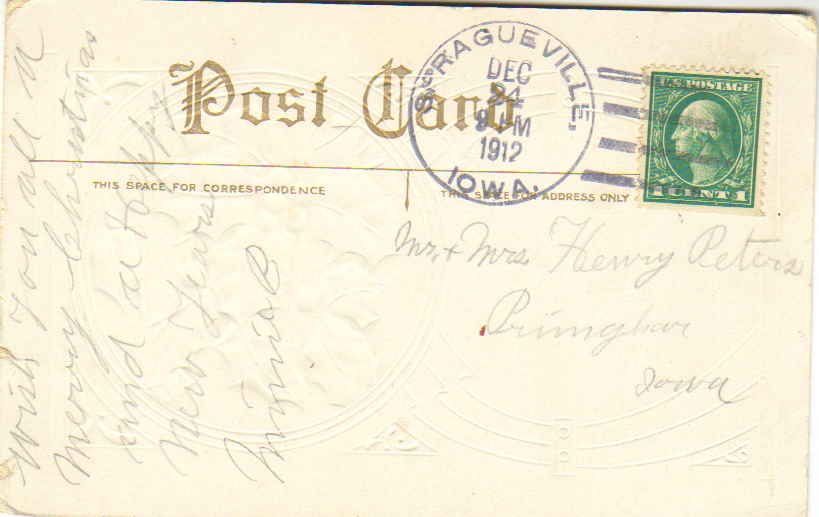 Post Card
SPRAGUEVILLE,
DEC
24
PM
1912
IOWA.
U.S. POSTAGE
1 CENT 1
THIS SPACE FOR CORRESPONDENCE
THIS SPACE FOR ADDRESS ONLY
Mr. & Mrs. Henry Peters
Primghar
Iowa
Wish You all a
Merry Christmas
and a Happy
New Years
Minnie R